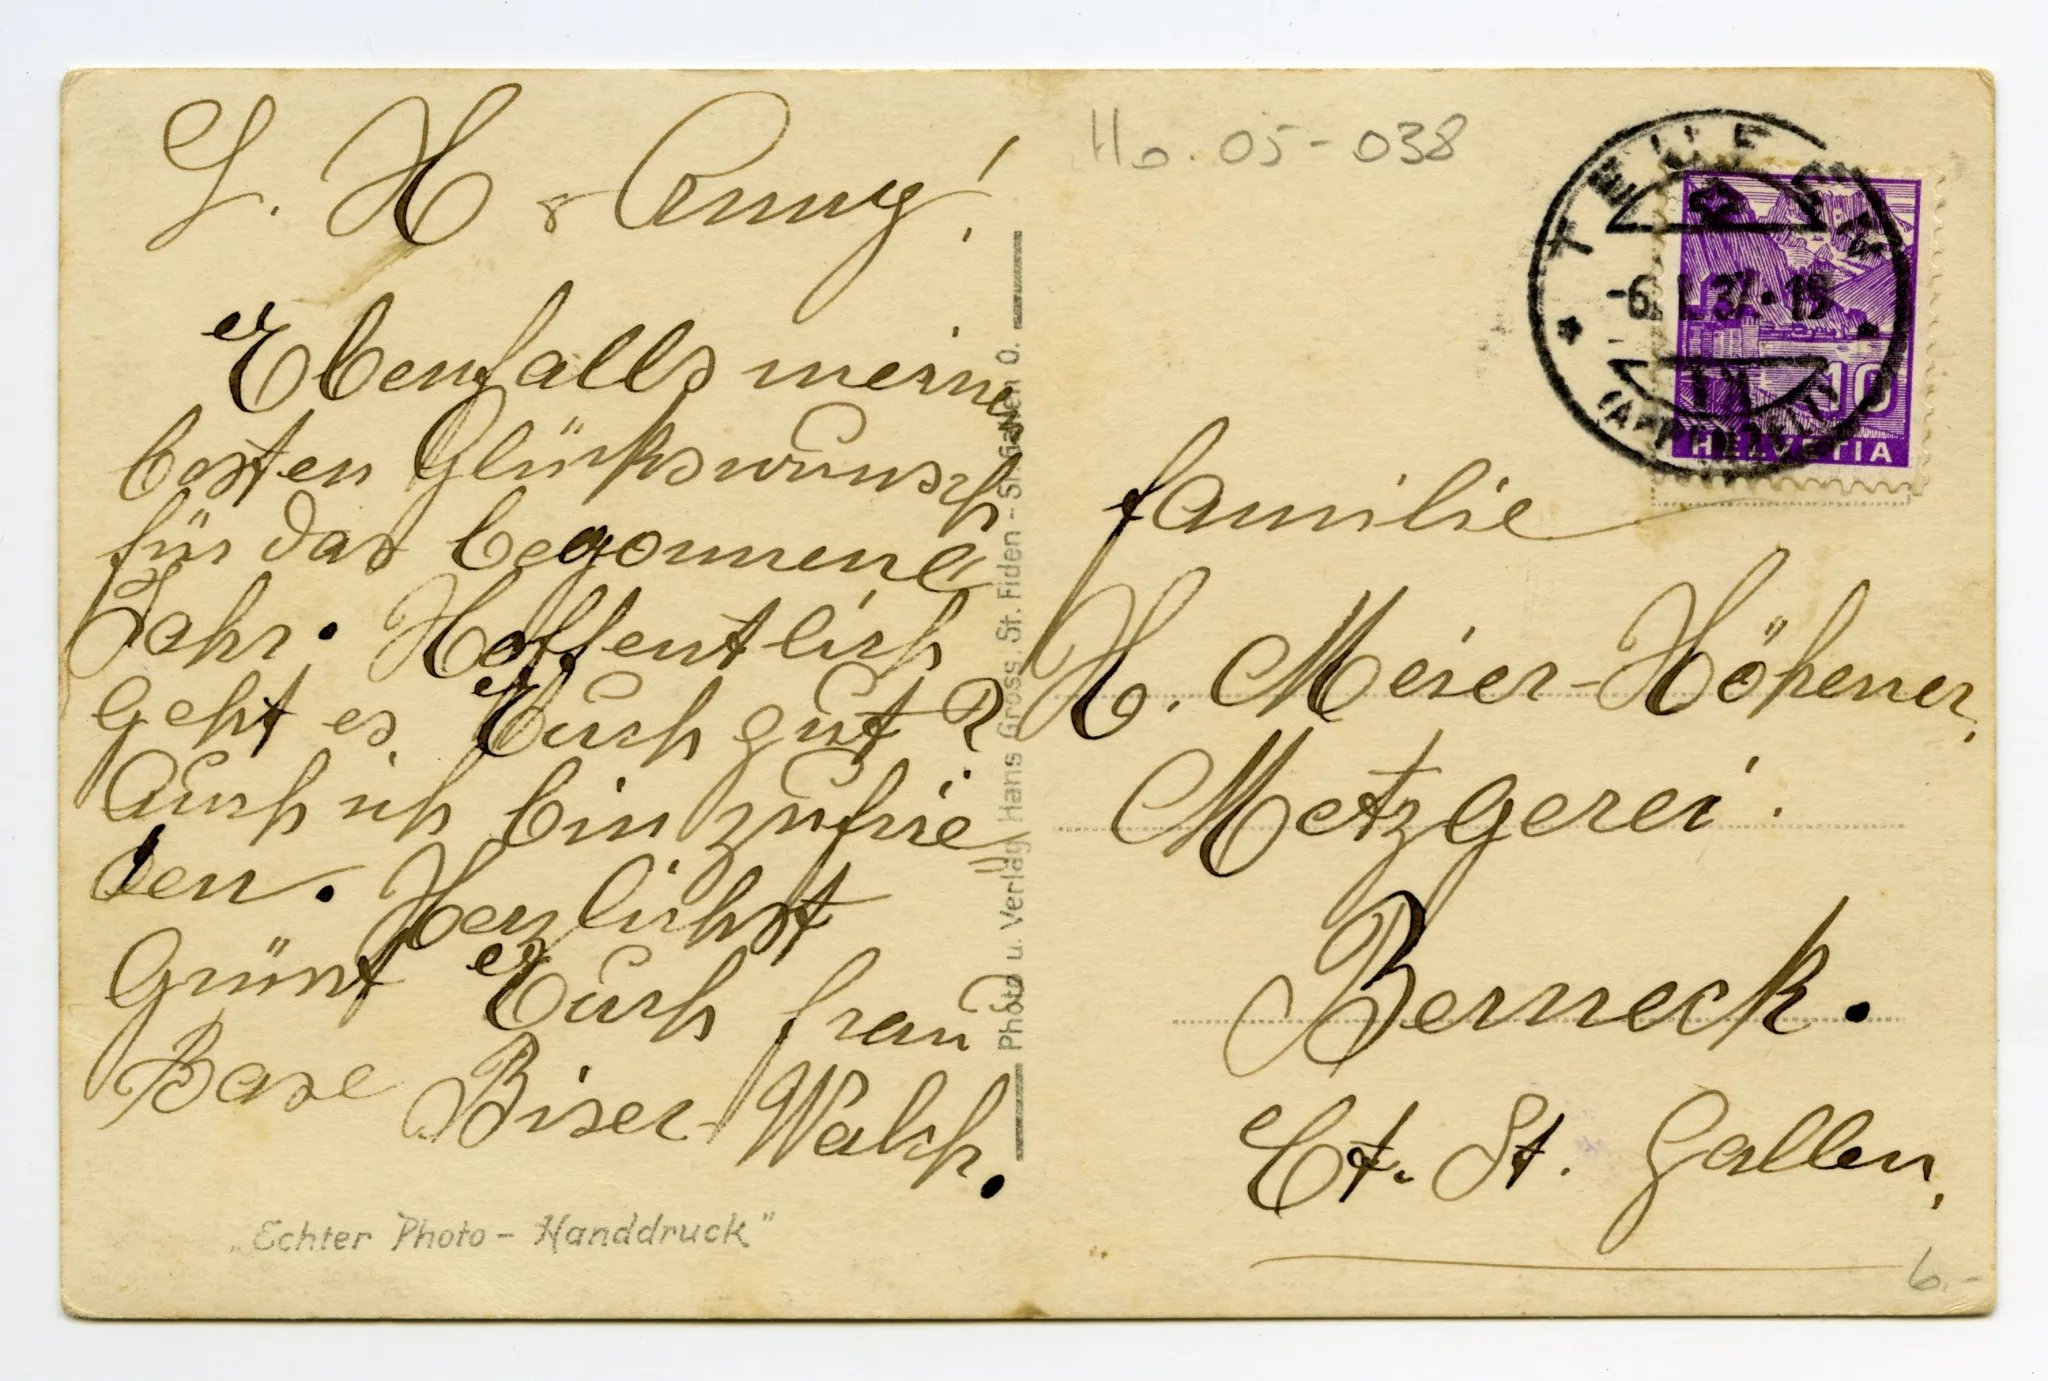 L. H & Anny!
Ebenfalls meine
besten Glückswunsch
für das begonnene
Jahr. Hoffentlich
geht es Euch gut?
Auch ich bin zufrie
den. Herzlichst
Grünst Euch frau
Base Biser-Walsh.
„Echter Photo - Handdruck"
Photo u. Verlag Hans Gross, St. Fiden - St. Gallen O.
Ho. 05-038
TEUFEN
-6.I.37.-19
(APPENZELL)
10
HELVETIA
familie
H. Meier-Höhener,
Metzgerei.
Berneck.
Ct. St. Gallen,
6.-